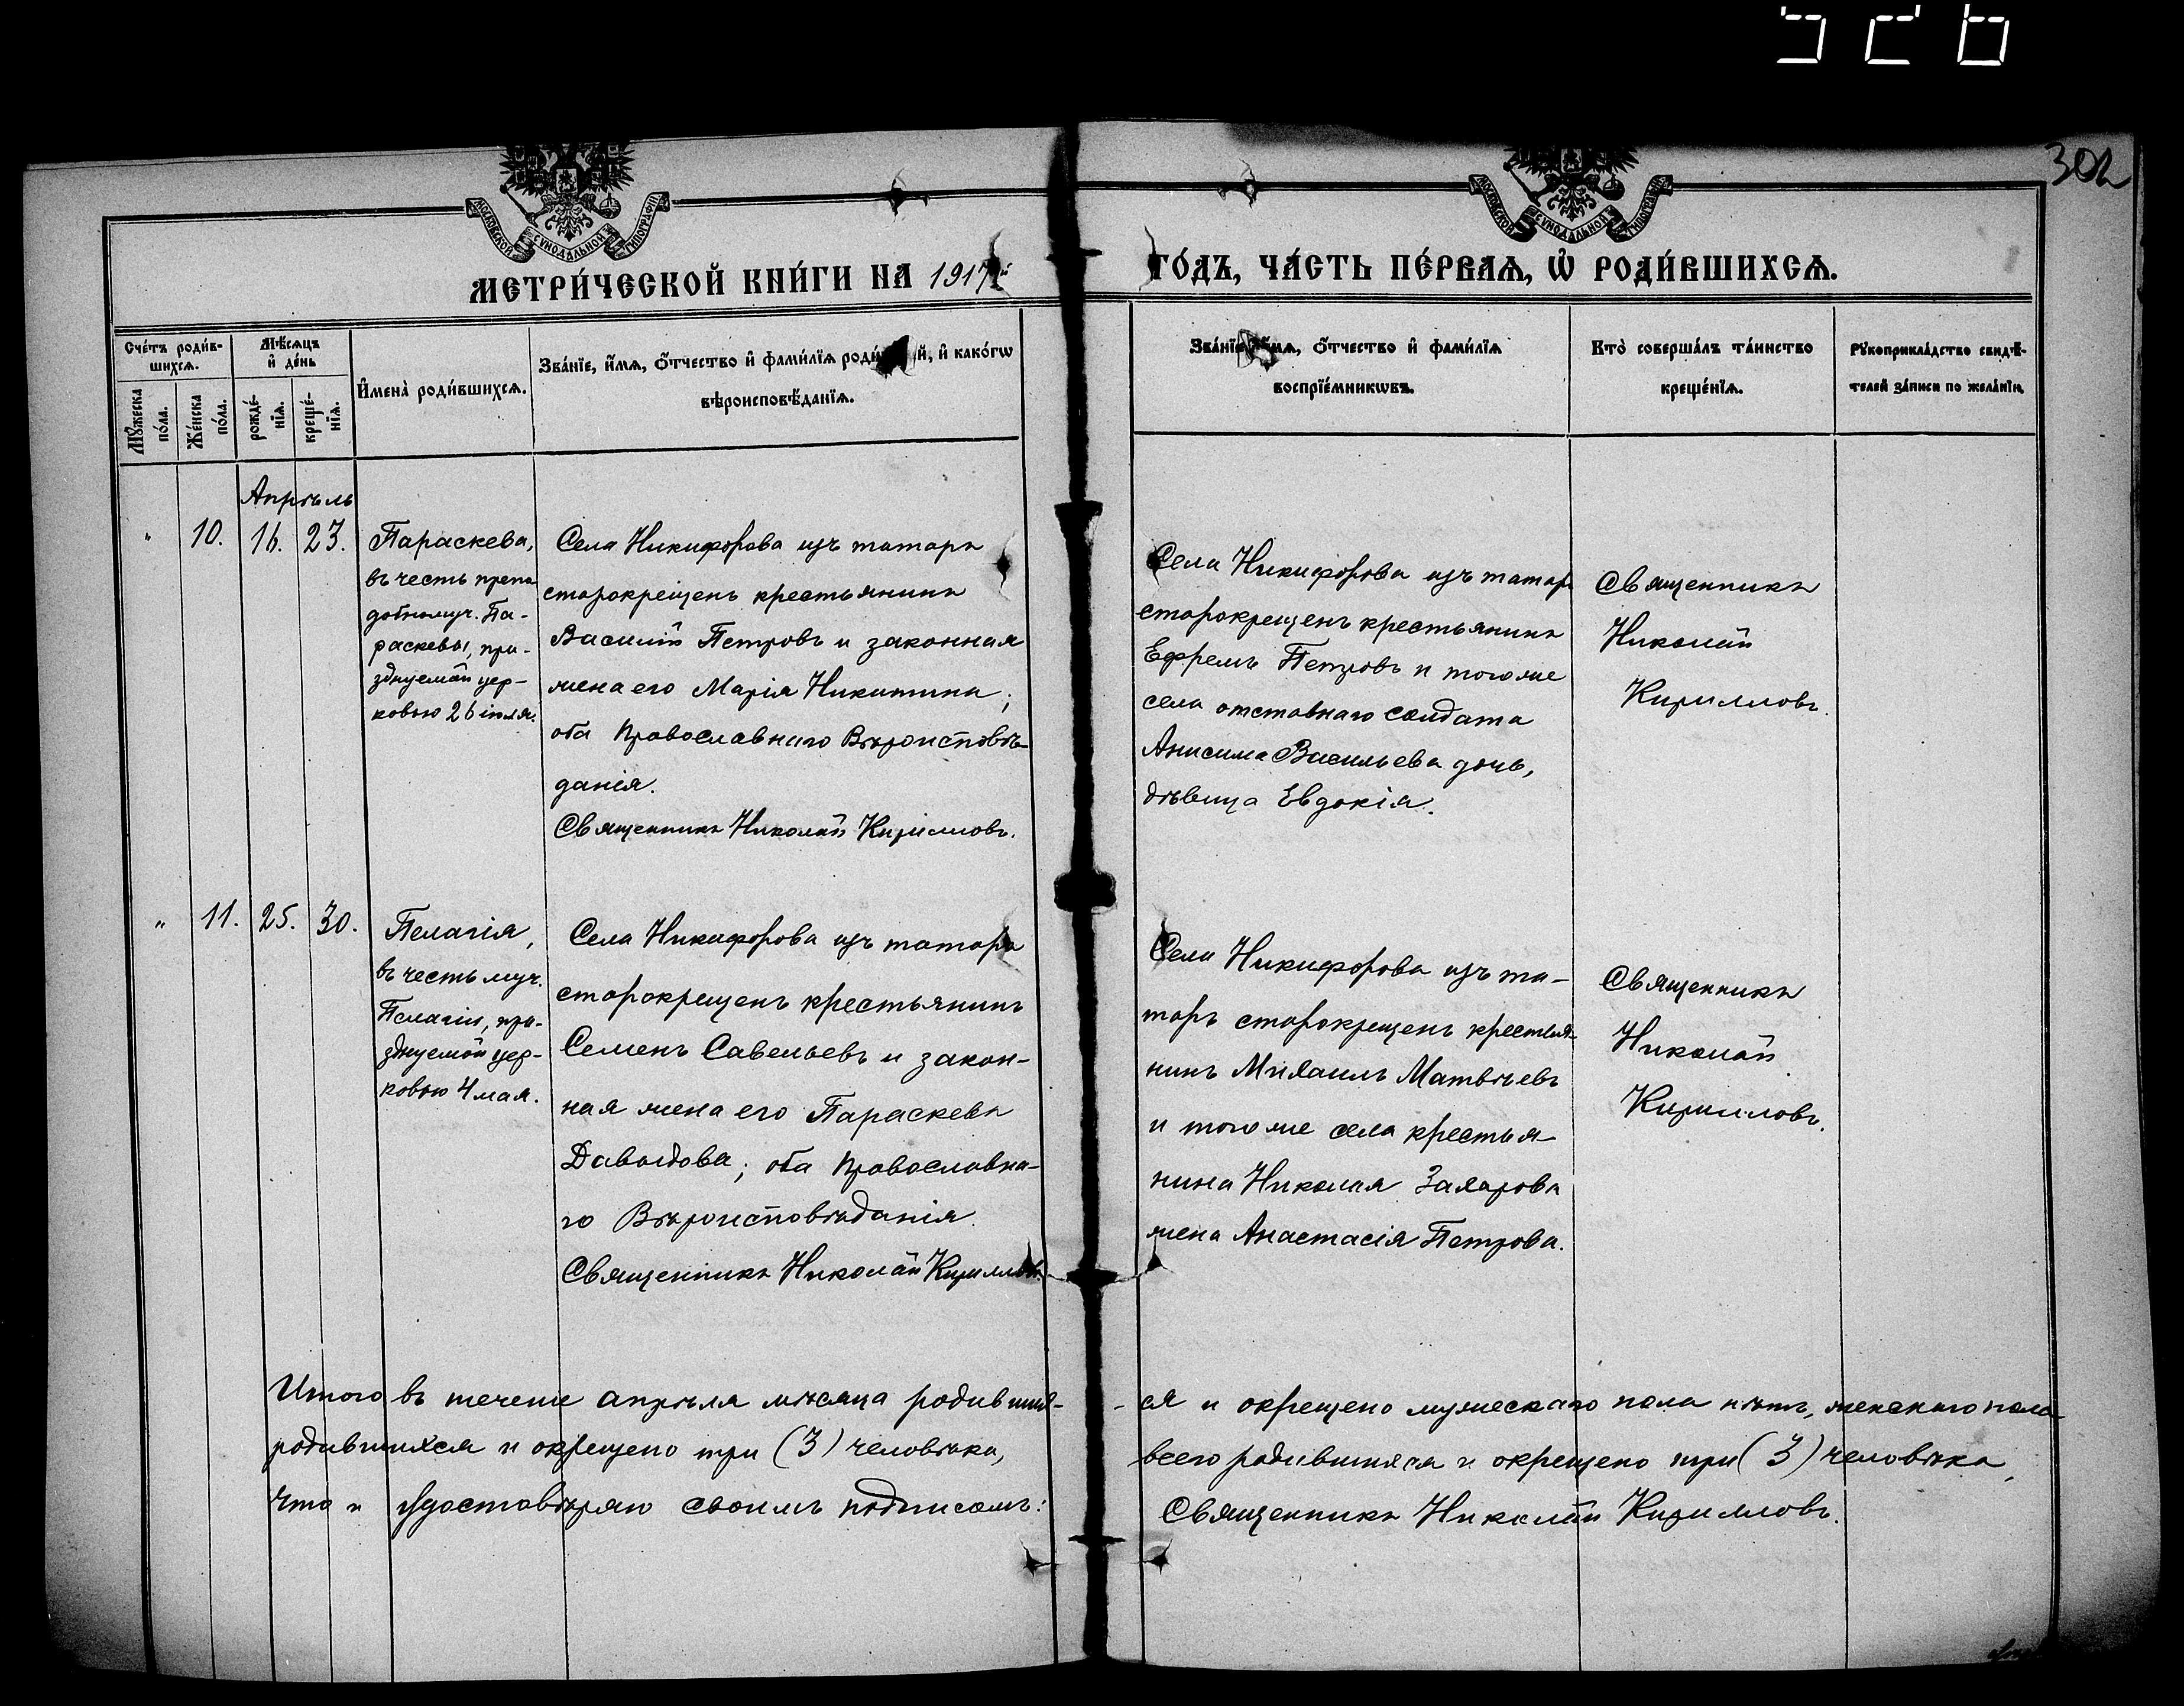 302
МОСКОВСКОЙ СѴНОДАЛЬНОЙ ТИПОГРАФІИ
МОСКОВСКОЙ СѴНОДАЛЬНОЙ ТИПОГРАФІИ
МЕТРИ́ЧЕСКОЙ КНИ́ГИ НА 1917й
ГО́ДЪ, ЧА́СТЬ ПЕ́РВАѦ, Ѡ҆ РОДИ́ВШИХСѦ.
Сче́тъ роди́в-
шихсѧ.
Мѣ́сѧцъ
и҆ де́нь
Мꙋ́жеска
по́ла.
Же́нска
по́ла.
рожде́-
нїѧ.
креще́-
нїѧ.
И҆мена̀ роди́вшихсѧ.
Зва́нїе, и҆́мѧ, ѻ҆́тчество и҆ фами́лїѧ роди́ й, и҆ како́гѡ
вѣроисповѣ́данїѧ.
Зва́нїе, и҆́мѧ, ѻ҆́тчество и҆ фами́лїѧ
воспрїе́мникѡвъ.
Кто̀ соверша́лъ та́инство
креще́нїѧ.
Рꙋкоприкла́дство свидѣ́-
телей за́писи по жела́нїю.
Апрѣль
" 10. 16. 23.
Параскева,
въ честь препо
добномуч. Па-
раскевы, пра-
зднуемой цер-
ковью 26 іюля.
Села Никифорова изъ татаръ
старокрещенъ крестьянинъ
Василій Петровъ и законная
жена его Марія Никитина;
оба Православнаго Вѣроисповѣ-
данія.
Священникъ Николай Кирилловъ.
Села Никифорова изъ татаръ
старокрещенъ крестьянинъ
Ефремъ Петровъ и того же
села отставнаго солдата
Анисима Васильева дочь,
дѣвица Евдокія.
Священникъ
Николай
Кирилловъ.
" 11. 25. 30.
Пелагія,
въ честь муч.
Пелагіи, пра-
зднуемой цер-
ковью 4 мая.
Села Никифорова изъ татаръ
старокрещенъ крестьянинъ
Семенъ Савельевъ и закон-
ная жена его Параскева
Давыдова; оба Православна-
го Вѣроисповѣданія.
Священникъ Николай Кирилловъ.
Села Никифорова изъ та-
таръ старокрещенъ крестья-
нинъ Михаилъ Матвѣевъ
и того же села крестья-
нина Николая Захарова
жена Анастасія Петрова.
Священникъ
Николай
Кирилловъ.
Итого въ течение апрѣля мѣсяца родивших-
-ся и окрещено мужескаго пола нѣтъ, женскаго пола
родившихся и окрещено три (3) человѣка,
всего родившихся и окрещено три (3) человѣка,
Что и удостовѣряю своимъ подписомъ:
Священникъ Николай Кирилловъ.